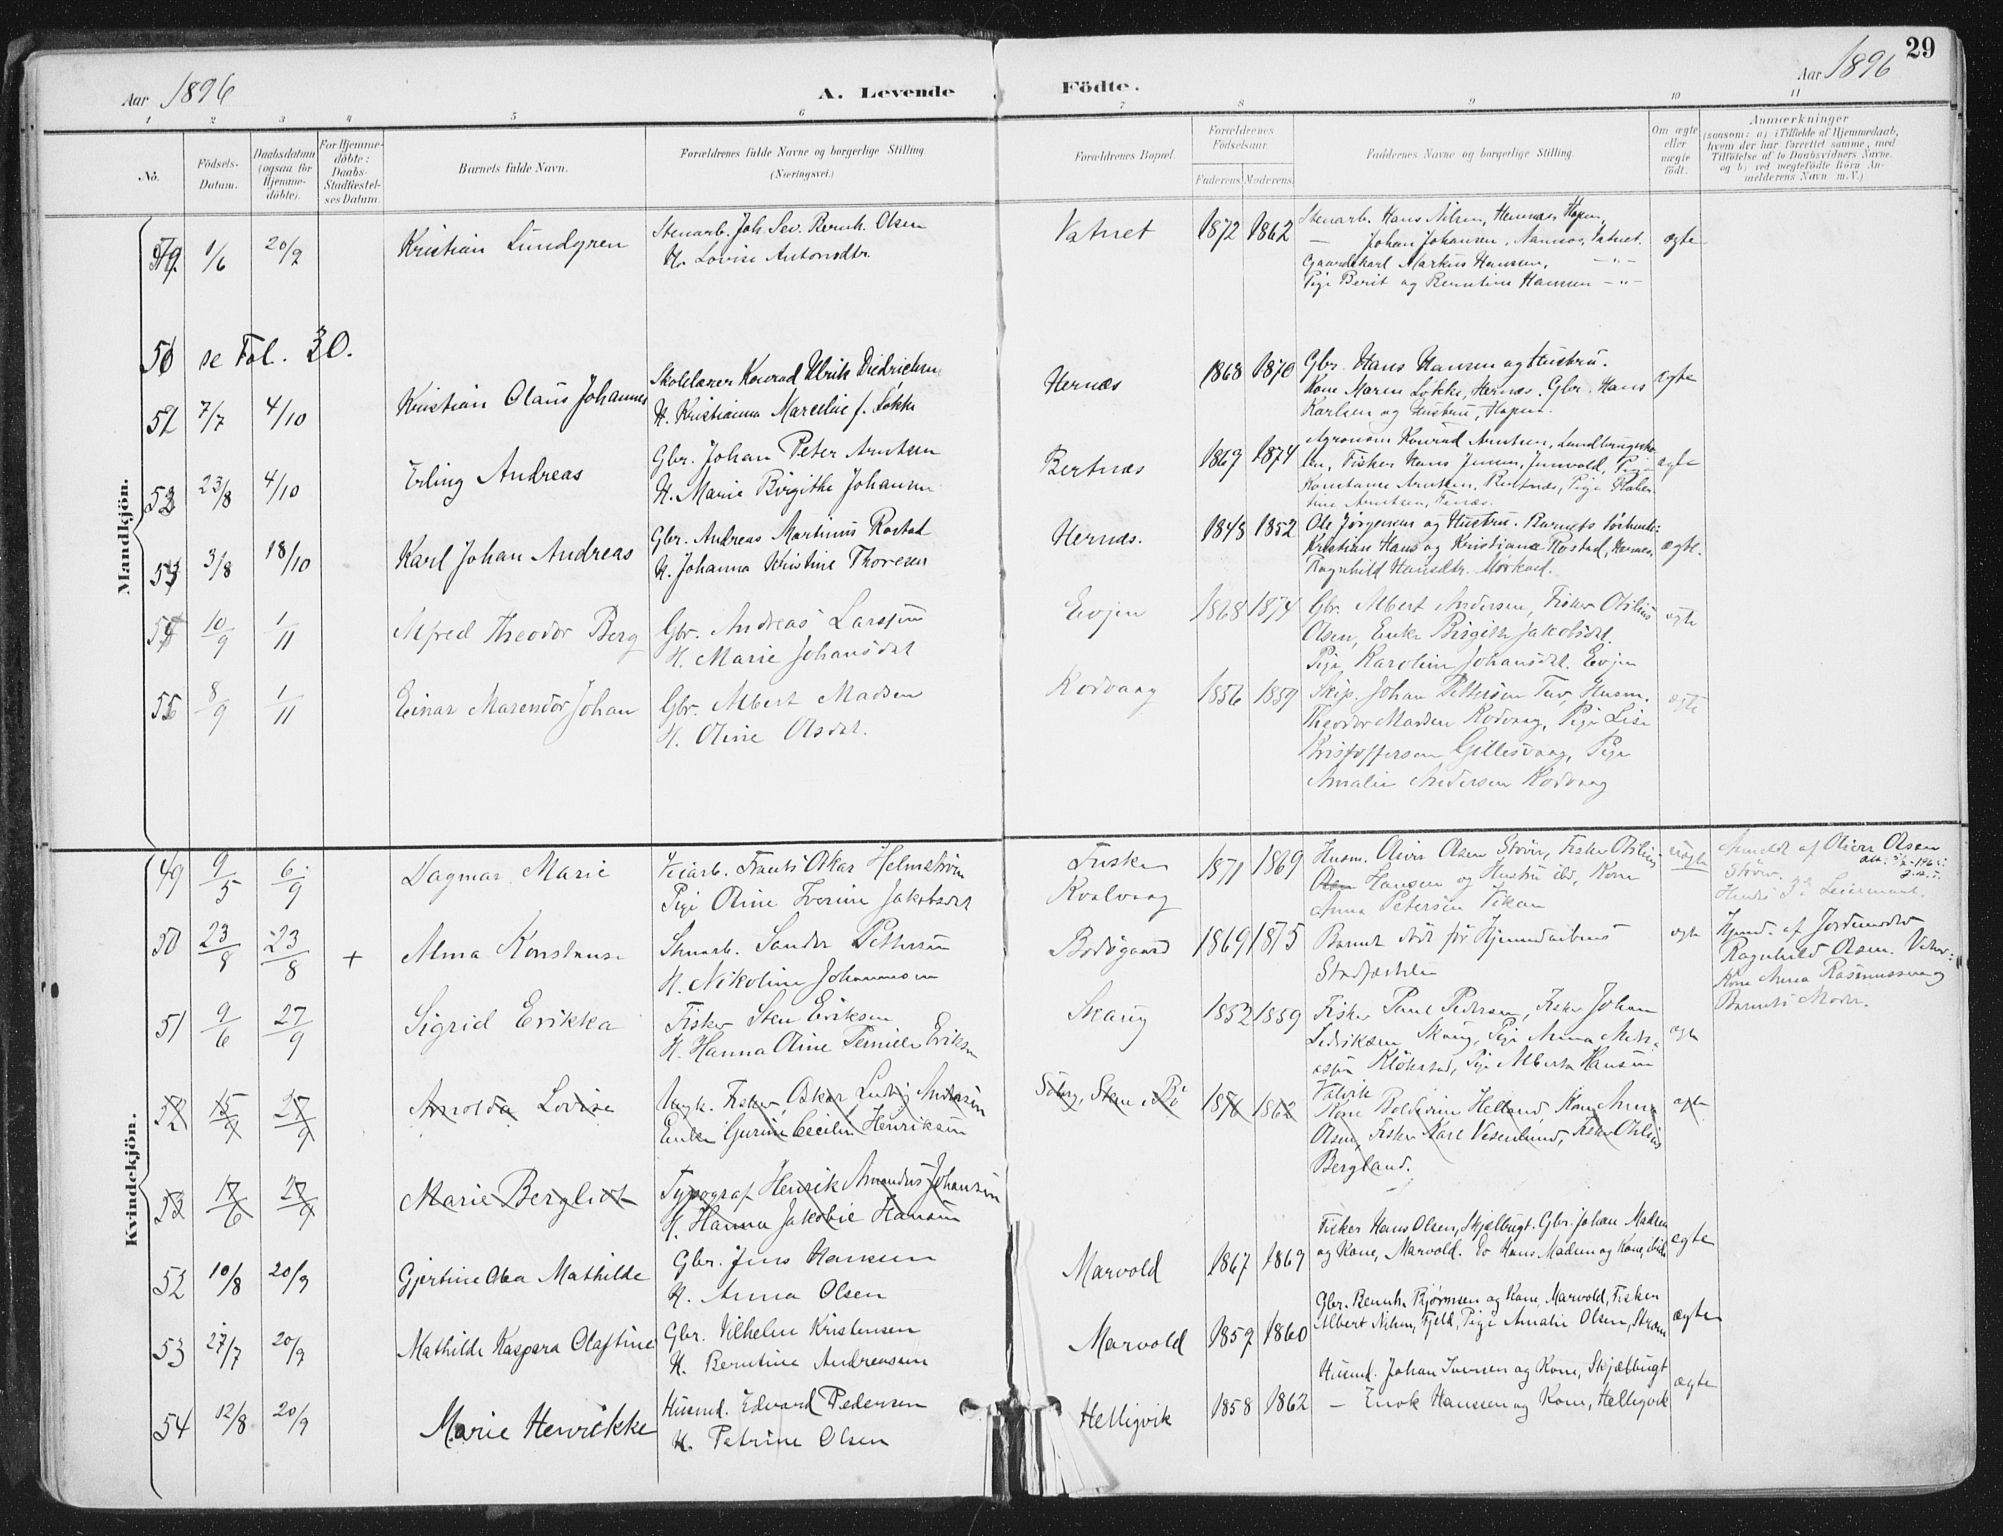 29
Aar 1896
A. Levende Födte.
Aar 1896
1 2 3 4 5 6 7 8 9 10 11
No.
Födsels-Datum.
Daabsdatum (ogsaa for Hjemme-döbte).
For Hjemme-döbte: Daabs-Stadfæstel-ses Datum.
Barnets fulde Navn.
Forældrenes fulde Navne og borgerlige Stilling (Næringsvei.)
Forældrenes Bopæl.
Forældrenes Födselsaar.
Faderens. Moderens.
Faddernes Navne og borgerlige Stilling.
Om ægte eller uægte födt.
Anmærkninger
(saasom: a) i Tilfælde af Hjemmedaab, hvem der har forrettet samme, med Tilföielse af to Daabsvidners Navne, og b) ved uægtefödte Börn An-melderens Navn m. V.)
Mandkjön.
49 1/6 20/9 Kristian Lundgren
Stenarb. Joh. Sev. Bernh. Olsen
H. Lovise Antonsdtr.
Vatnet 1872 1862
Stenarb. Hans Nilsen, Hopen,
— Johan Johansen, Vatnet.
Gaardskarl Markus Hansen, — " —
Pige Berit og Berntine Hansen — " —
ægte
50 se Fol. 30.
51 7/7 4/10 Kristian Olaus Johannes
Skolelærer Konrad Ulrik Diedrichsen
H. Kristianna Marceline f. Løkke
Hernæs 1868 1870
Gbr. Hans Hansen og Hustru.
Kone Maren Løkke, Hernæs. Gbr. Hans
Karlsen og Hustru, Hopen.
ægte
52 23/8 4/10 Erling Andreas
Gbr. Johan Peter Arntsen
H. Marie Birgithe Johansen
Bertnæs 1869 1874
Agronom Konrad Arntsen,
Fisker Hans Jensen, Junvold, Pige
Konstanse Arntsen, Bertnæs, Pige
Arntsen,
ægte
53 3/8 18/10 Karl Johan Andreas
Gbr. Andreas Martinus Rostad
H. Johanna Kristine Thoresen
Hernæs. 1848 1852
Ole Jørgensen og Hustru. Barnets
Kristian Hans og Kristiana Rostad, Hernæs,
Ragnhild Hansdtr. Mørkved.
ægte.
54 10/9 1/11 Alfred Theodor Berg
Gbr. Andreas Larssen
H. Marie Johansdat
Evjen 1868 1874
Gbr. Albert Andersen, Fisker Otilius
Olsen, Enke Birgitte Jakobsdat.
Pige Karoline Johansdat. Evjen
ægte
55 8/9 1/11 Einar Marendor Johan
Gbr. Albert Madsen
H. Oline Olsdat.
Kodvaag 1856 1859
Skip. Johan Pettersen Tuv, Husm.
Theodor Madsen Kodvaag, Pige Lise
Kristoffersen Gillesvaag, Pige
Amalie Andersen Kodvaag
ægte
Kvindekjön.
49 9/5 6/9 Dagmar Marie
Veiarb. Frants Oskar Helmstrøm
Pige Oline Iverine Jakobsdat
Fuske
Kvalvaag
1871 1869
Husm. Oliver Olsen Støver, Fisker Otilius
Olsen Hansen og Hustru ibd, Kone
Anna Petersen Vikan
uægte
Anmeldt af Oliver Olsen
Støver.
Hendes 1ste Leiermaal.
50 23/8 23/8 + Alma Konstanse
Stenarb. Sander Pettersen
H. Nikoline Johannesen
Bodøgaard 1869 1875
Barnet død før Hjemmedaabens
Stadfæstelse
ægte
Hjemd. af Jordemoder
Ragnhild Olsen. Vidner:
Kone Anna Rasmussen og
Barnets Moder.
51 9/6 27/9 Sigrid Erikka
Fisker Sten Eriksen
H. Hanna Oline Pernille Eriksen
Skaug 1852 1859
Fisker Paul Pedersen, Fisker Johan
Didriksen Skaug, Pige Anna
Kløkstad, Pige Alberta Hansen
Valvik
ægte
52 15/9 27/9 Arnolda Lovise
Ungk. Fisker Oskar Ludvig Andersen
Enke Gurine Cecilie Henriksen
Søberg, Stene i Bø 1870 1862
Kone Helland, Kone Anna
Olsen, Fisker Karl Vesenlund, Fisker Otilius
Bergland.
ægt
53 17/6 27/9 Marie Bergliot
Typograf Henrik Amandus Johansen
H. Hanna Jakobie Hansen
52 10/8 20/9 Gjertine Olea Mathilde
Gbr. Jens Hansen
H. Anna Olsen
Marvold 1867 1869
Fisker Hans Olsen, Skjælbugt. Gbr. Johan Madsen
og Kone, Marvold. Hans Madsen og Kone, ibid
ægte
53 27/7 20/9 Mathilde Kaspara Olaftine
Gbr. Vilhelm Kristensen
H. Berntine Andreassen
Marvold 1859 1860
Gbr. Bernh. Bjørnsen og Kone, Marvold, Fisker
Albert Nilsen, Fjell, Pige Amalie Olsen, Strøm
ægte
54 12/8 20/9 Marie Henrikke
Husmd. Edvard Pedersen
H. Petrine Olsen
Helligvik 1858 1862
Husmd. Johan Iversen og Kone, Skjælbugt
— Enok Hanssen og Kone, Helligvik
ægte